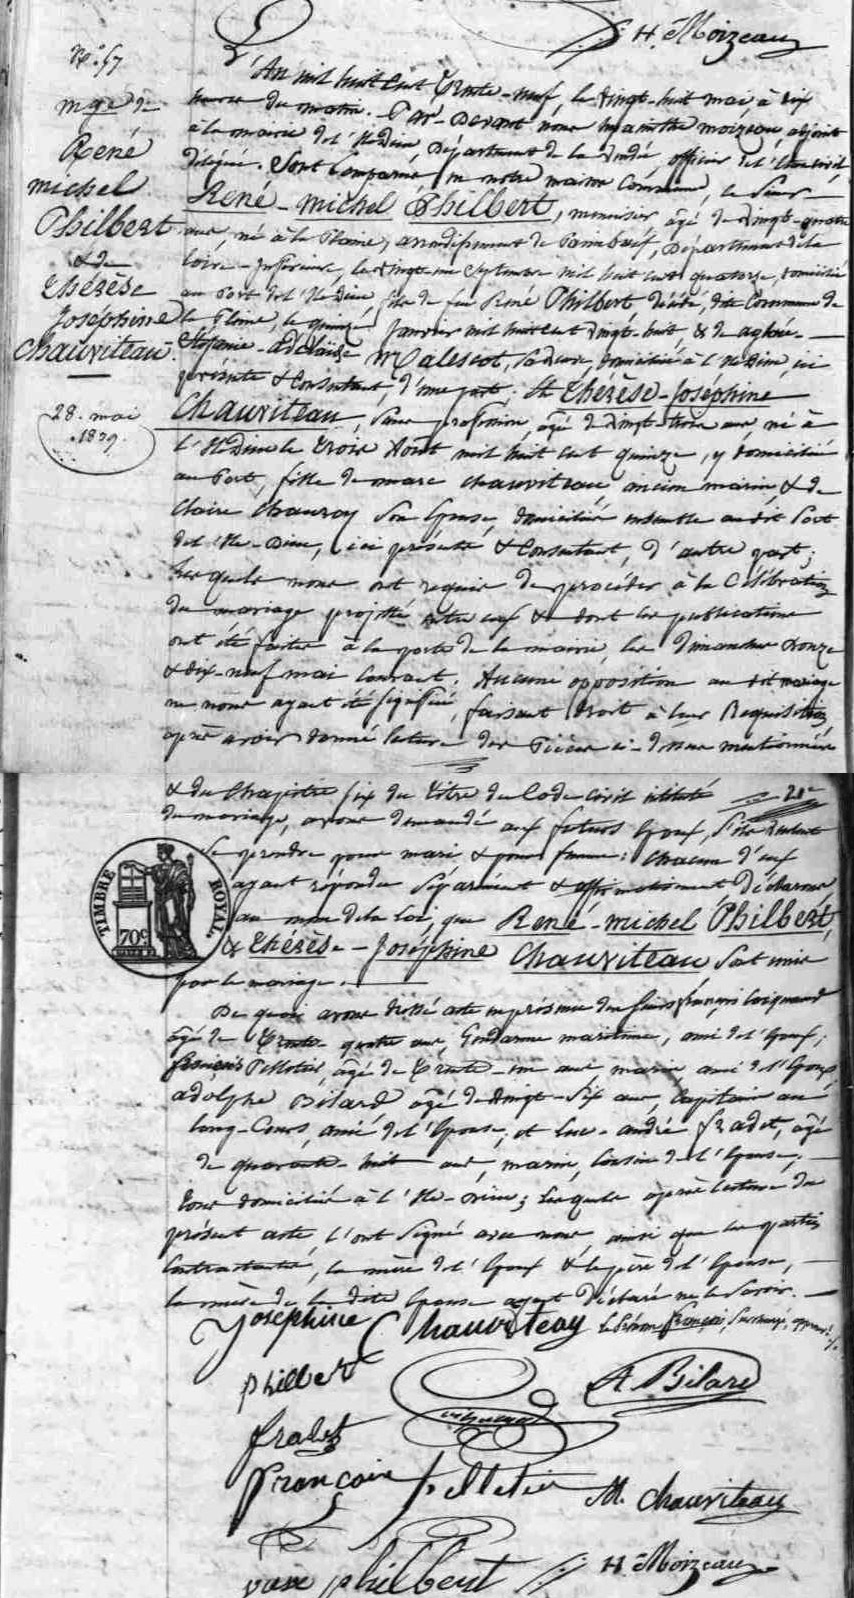 H. Moizeau
N.° 57
mge de
René
michel
Philbert
& de
Thérèse
Joséphine
Chauviteau.
28. mai
1839.
L'An mil huit cent trente-neuf, le vingt-huit mai, à dix
heures du matin. Par-devant nous hyacinthe moizeau, adjoint
à la mairie de l'Ile Dieu, Département de la Vendée, officier de l'état civil
délégué. Sont comparus en notre maison commune, le sieur
René-michel Philbert, menuisier, âgé de vingt-quatre
ans, né à la Plaine, arrondissement de Paimboeuf, Département de la
Loire-Inférieure, le vingt-un septembre mil huit cent quatorze, domicilié
au Port de l'Ile Dieu, fils de feu René Philbert décédé, dite Commune de
la Plaine, le quinze janvier mil huit cent vingt-huit, & de
Stéfanie-adélaïde Malescot, sa veuve, domiciliée à l'Ile Dieu, ici
présente & consentant, d'une part; Et Thérèse-Joséphine
Chauviteau, sans profession, âgée de vingt-trois ans, née à
l'Ile Dieu le trois Août mil huit cent quinze, y domiciliée
au Port, fille de marc chauviteau, ancien marin, & de
Claire Chauvoy son épouse, domiciliés ensemble audit Port
de l'Ile-Dieu, ici présents & consentant, d'autre part;
Lesquels nous ont requis de procéder à la Célébration
du mariage projetté entre eux & dont les publications
ont été faites à la porte de la mairie, les dimanches douze
& dix-neuf mai courant. Aucune opposition au dit mariage
ne nous ayant été signifiée, faisant droit à leur Requisition
après avoir donné lecture des Pièces ci-dessus mentionnées
& du Chapitre six du titre du Code civil intitulé
du mariage, avons demandé aux futurs époux, s'ils veulent
se prendre pour mari & pour femme: chacun d'eux
ayant répondu séparément & affirmativement Déclarons
au nom de la Loi, que René-michel Philbert,
& Thérèse-Joséphine Chauviteau sont unis
par le mariage.
TIMBRE ROYAL.
70c
De quoi avons dressé acte en présence de
âgé de trente-quatre ans, Gendarme maritime, ami de l'époux;
françois Pelletier, âgé de trente-un ans marin ami de l'époux
adolphe Bilard âgé de vingt-six ans, Capitaine au
long-Cours, ami de l'épouse; et Luc-andré fradet, âgé
de quarante-huit ans, marin, Cousin de l'épouse;
tous domiciliés à l'Ile-Dieu; Lesquels après lecture du
présent acte, l'ont signé avec nous ainsi que les parties
Contractantes, la mère de l'époux & le père de l'épouse,
la mère de la dite épouse ayant déclaré ne le savoir.
Le Prénom françois, surchargé, approuvé
Joséphine Chauviteau
philbert
A Bilard
fradet
françois pelletier
M. chauviteau
philbert
H. Moizeau